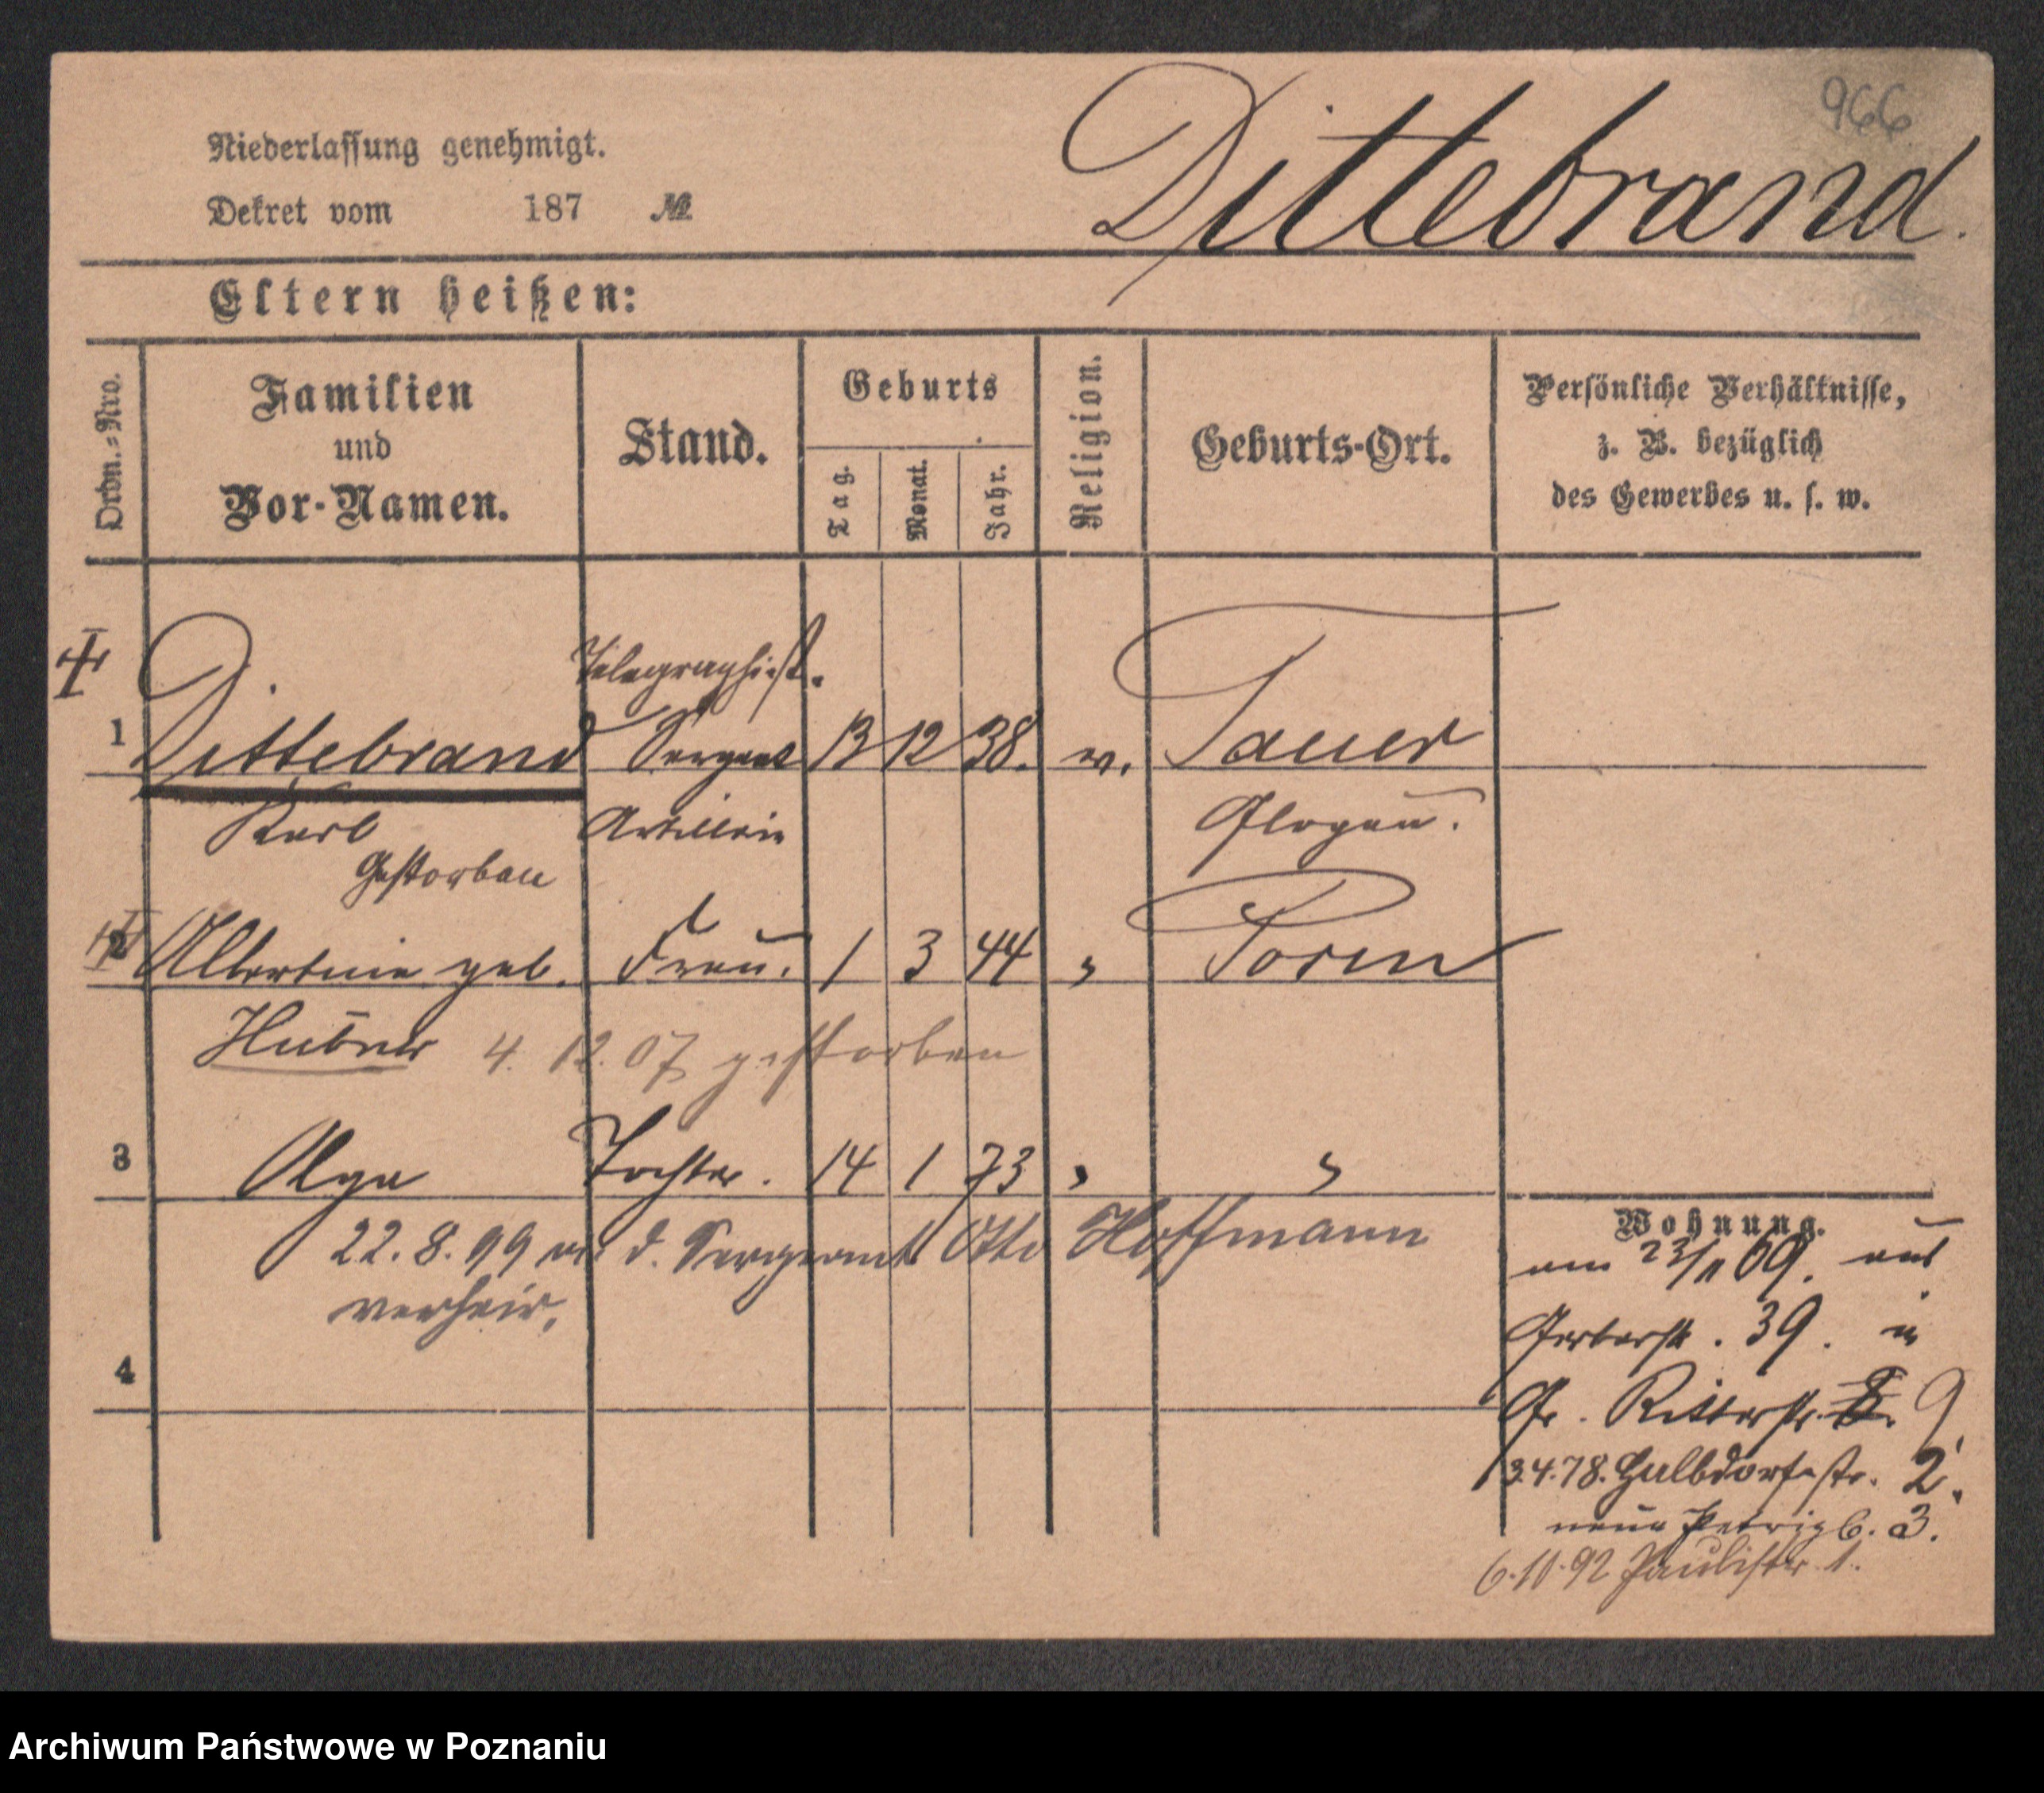 966
Niederlassung genehmigt.
Dekret vom 187 №
Dittebrand.
Eltern heißen:
Ordn.=Nro.
Familien und Vor-Namen.
Stand.
Geburts
Tag.
Monat.
Jahr.
Religion.
Geburts-Ort.
Persönliche Verhältnisse,
z. B. bezüglich
des Gewerbes u. s. w.
Telegraphist.
1 Dittebrand Sergent 13 12 38. ev. Tauer
Karl Artillerie Glogau.
Gestorben
2 Albertine geb. Frau. 1 3 44 " Posen
Hübner 4. 12. 07 gestorben
3 Olga Tochter. 14 1 73 " "
22. 8. 99 m. d. Sergeant Otto Hoffmann
verheir.
4
Wohnung.
am 23/11 69. aus
Gerberstr. 39. in
Gr. Ritterstr. 8. 9
3.4.78. Halbdorfstr. 2.
neue 3.
6.10.92 Paulistr. 1.
Archiwum Państwowe w Poznaniu